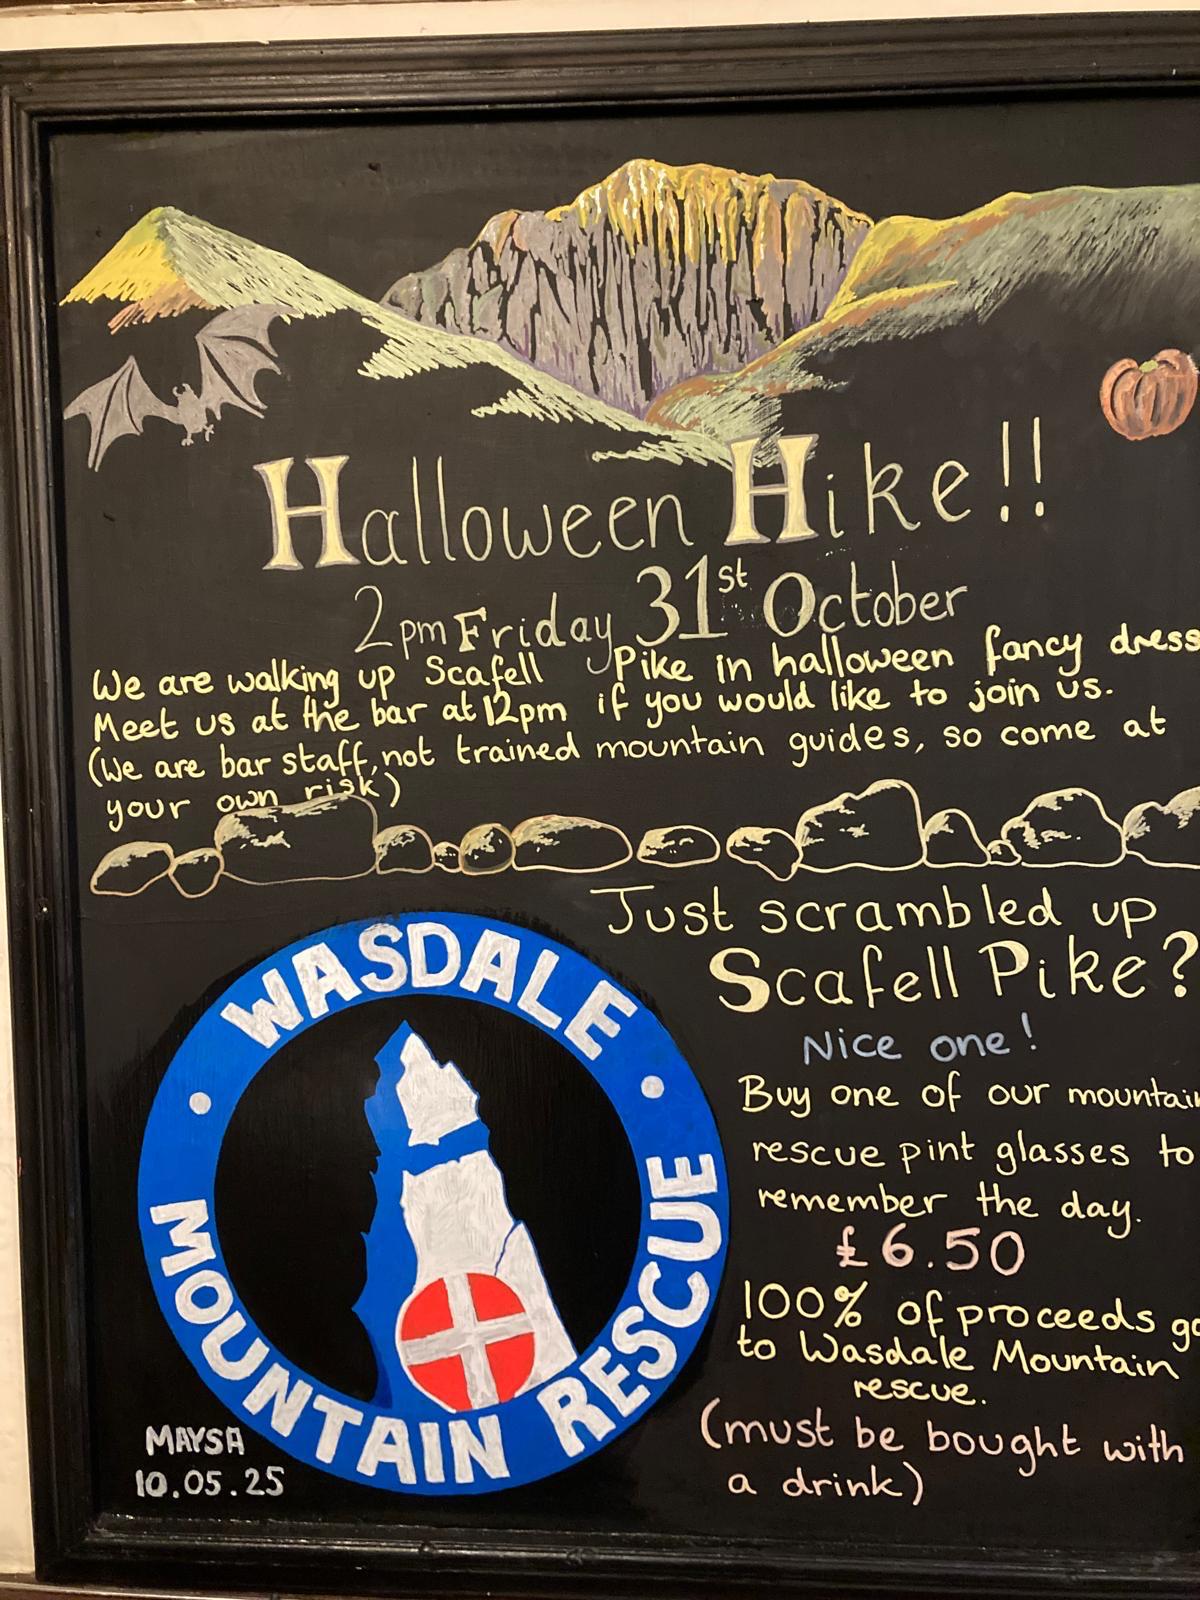 Halloween Hike!!
2pm Friday 31st October
We are walking up Scafell Pike in halloween fancy dress
Meet us at the bar at 12pm if you would like to join us.
(We are bar staff, not trained mountain guides, so come at
your own risk)
Just scrambled up
Scafell Pike?
Nice one!
Buy one of our mountain
rescue pint glasses to
remember the day.
£6.50
100% of proceeds go
to Wasdale Mountain
rescue.
(must be bought with
a drink)
WASDALE
MOUNTAIN RESCUE
MAYSA
10.05.25